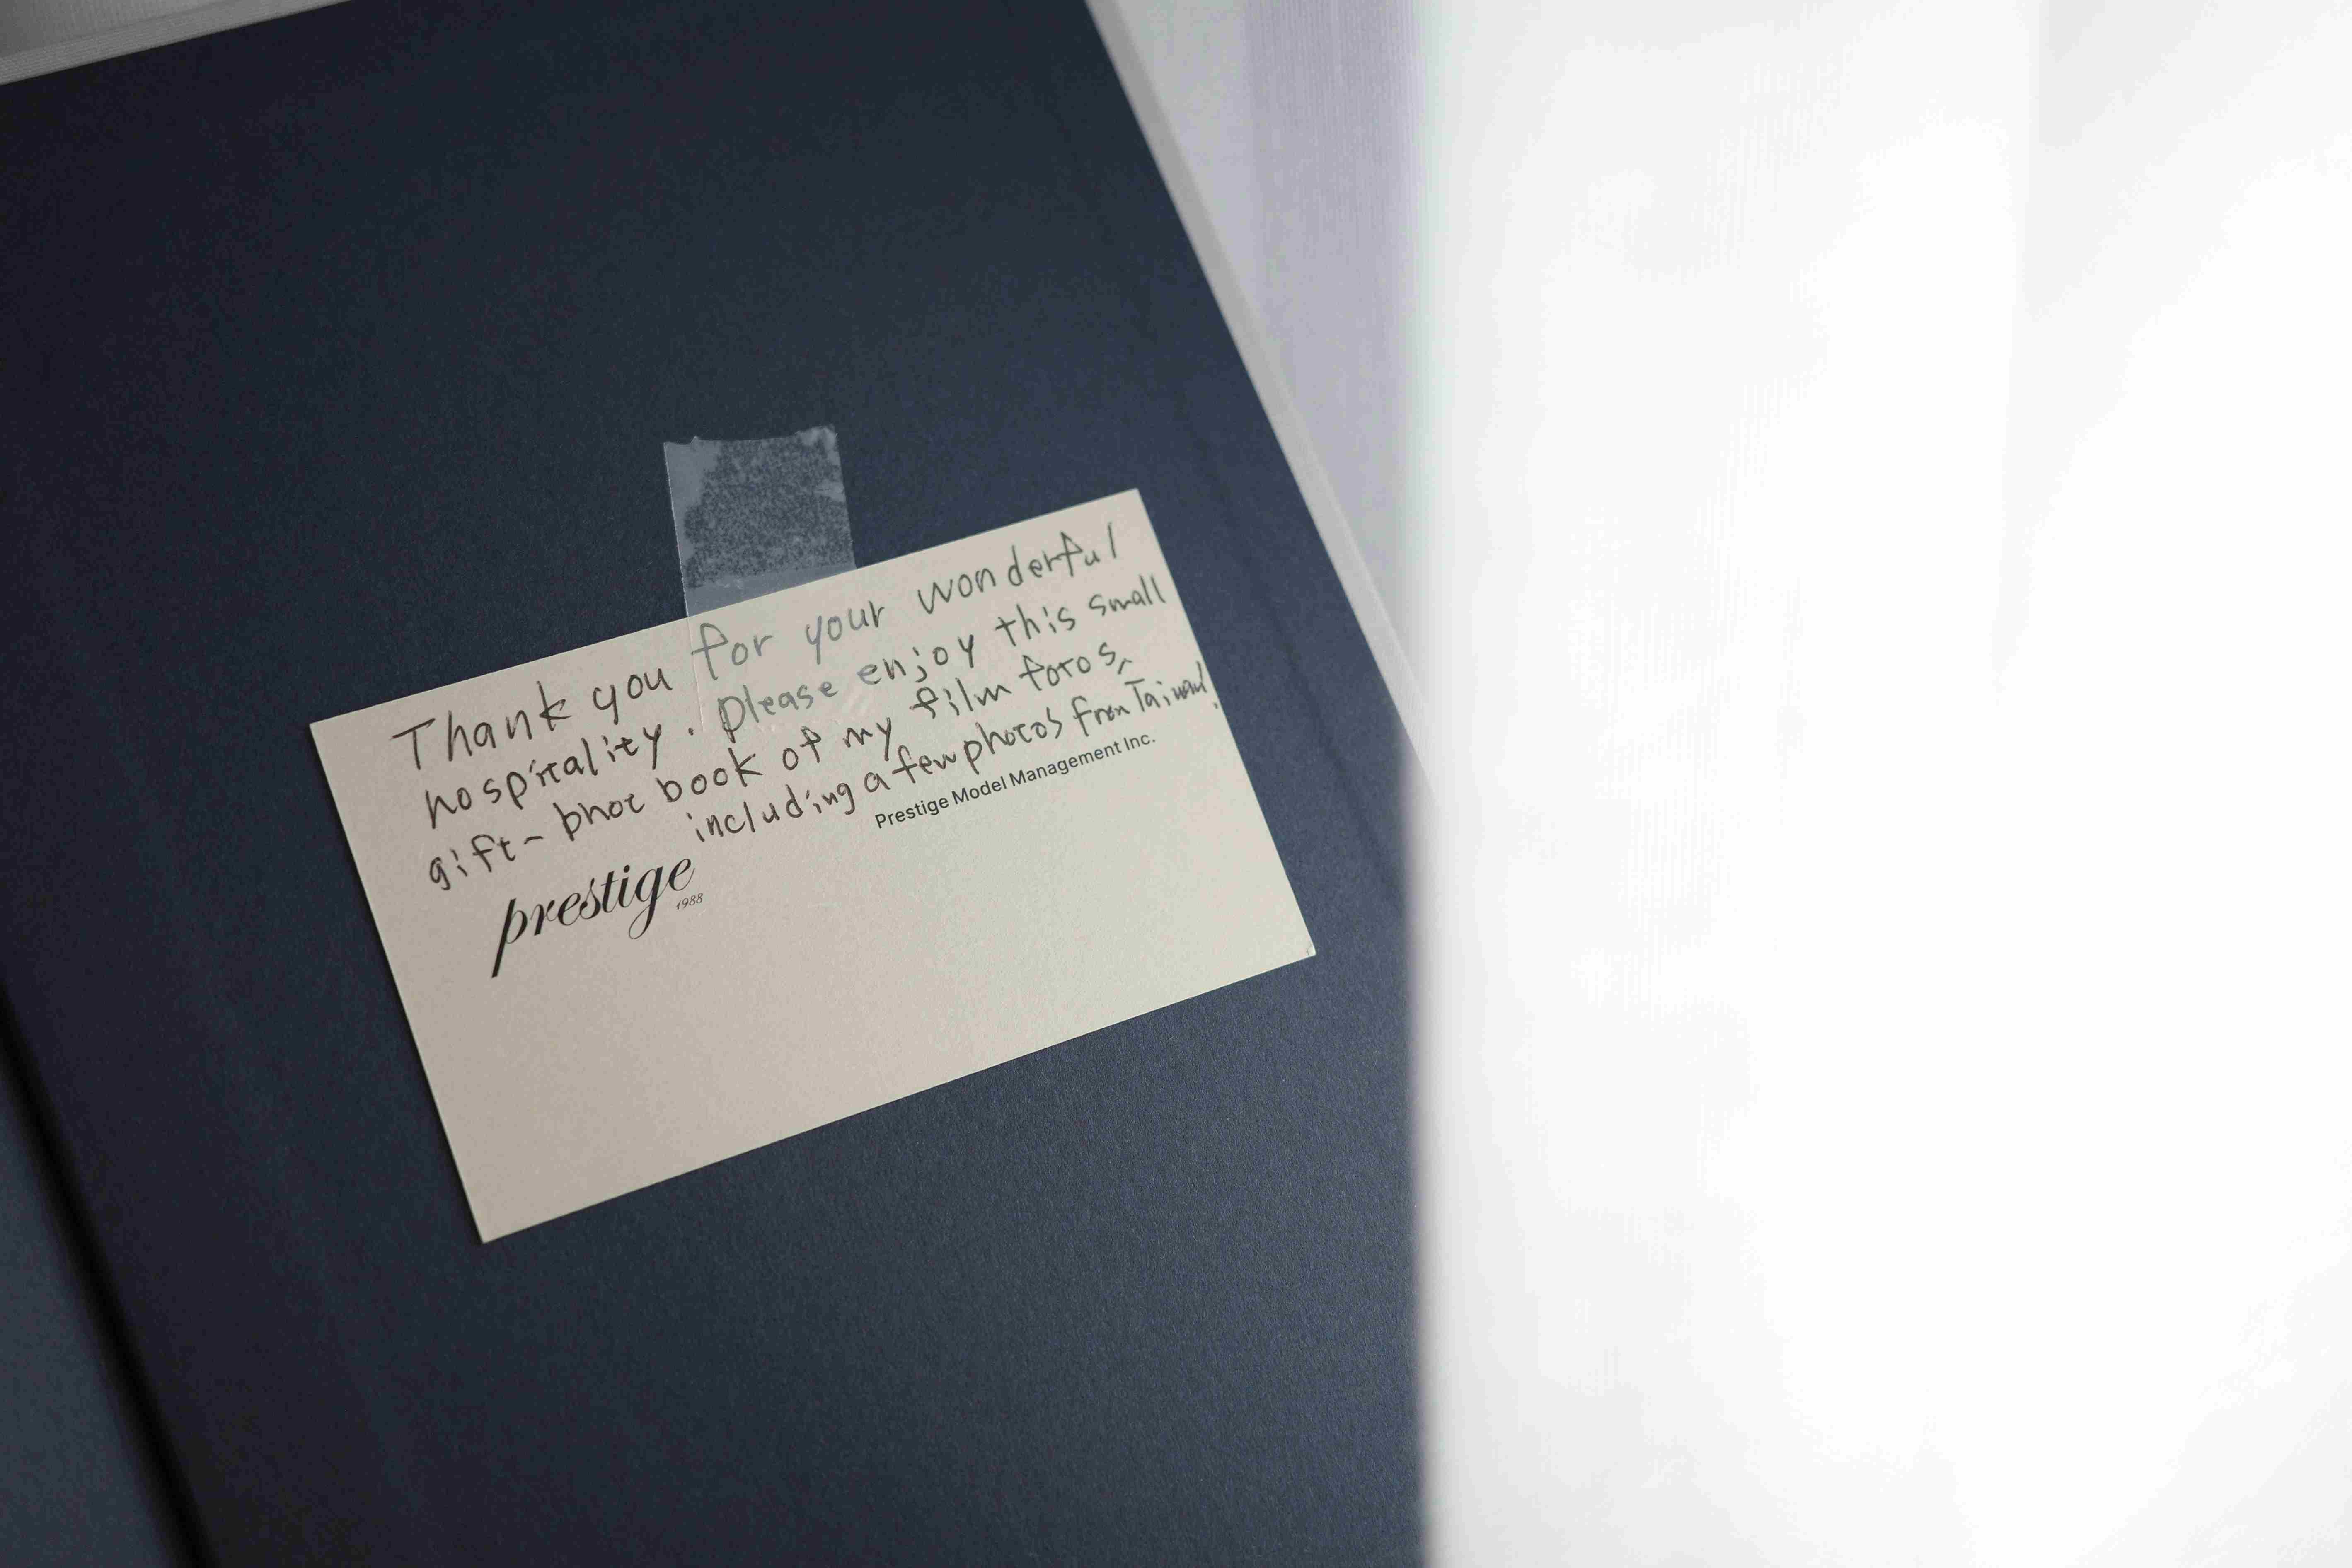 Thank you for your wonderful
hospitality. please enjoy this small
gift - phot book of my film fotos,
including a few photos from Taiwan!
Prestige Model Management Inc.
prestige
1988